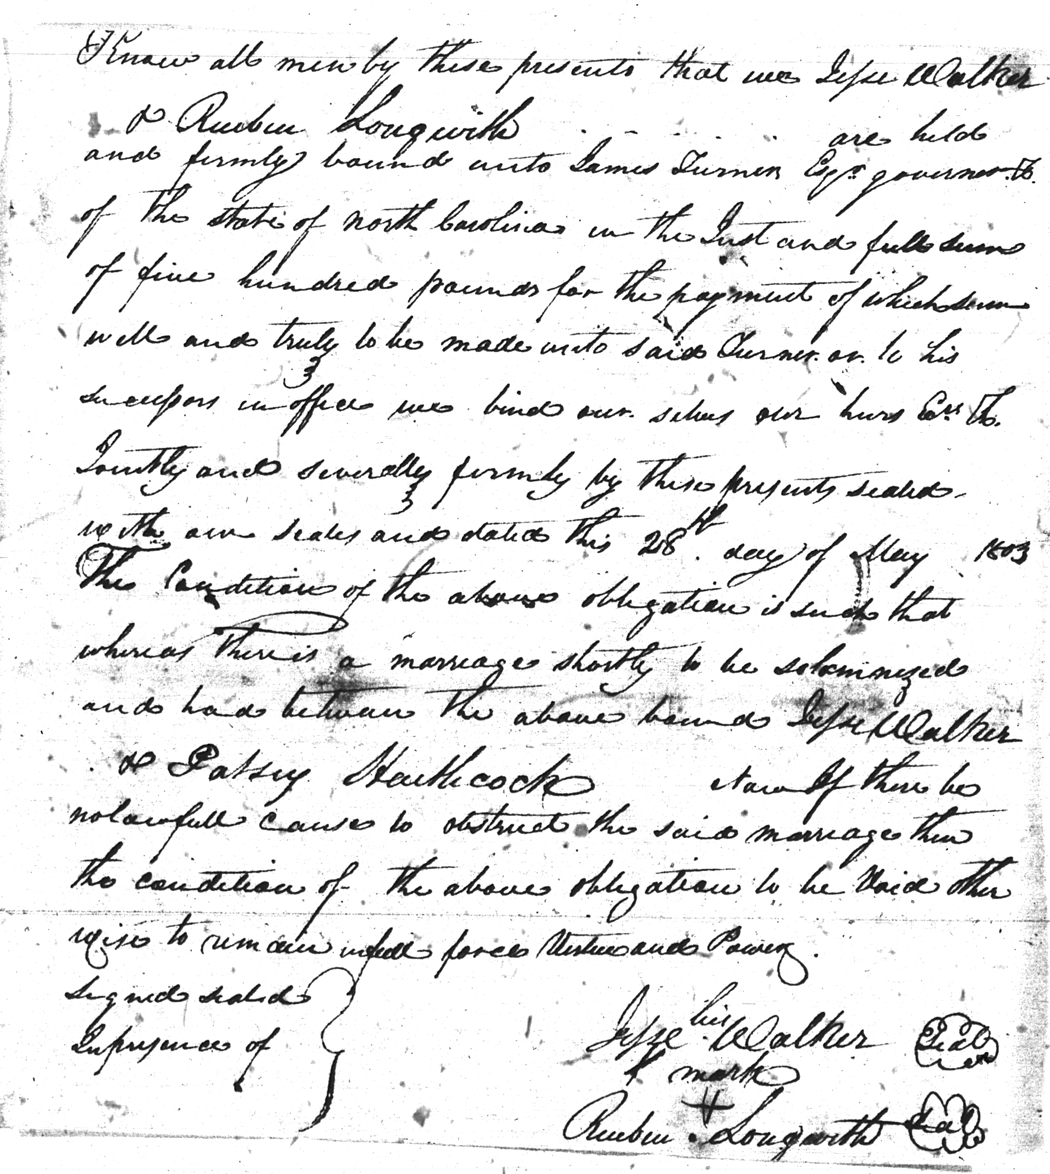 Know all men by these presents that we Jesse Walker
& Rueben Longwith are held
and firmly bound unto James Turner Esqr. governor &.
of the state of North Carolina in the Just and full sum
of five hundred pounds for the payment of which sum
well and truly to be made unto said Turner or to his
successors in office we bind our selves our heirs Exrs &.
Jointly and severally firmly by these presents sealed
with our seales and dated this 28th. day of May 1803
The Condition of the above obligation is such that
whereas there is a marriage shortly to be solemnezed
and had between the above bound Jesse Walker
& Patsey Hathcock Now If there be
no lawfull cause to obstruct the said marriage then
the condition of the above obligation to be Void other
wise to remain in full force Virtue and Power.
Signed sealed
In presence of
Jesse his Walker Seal
X mark
Rueben Longwith Seal